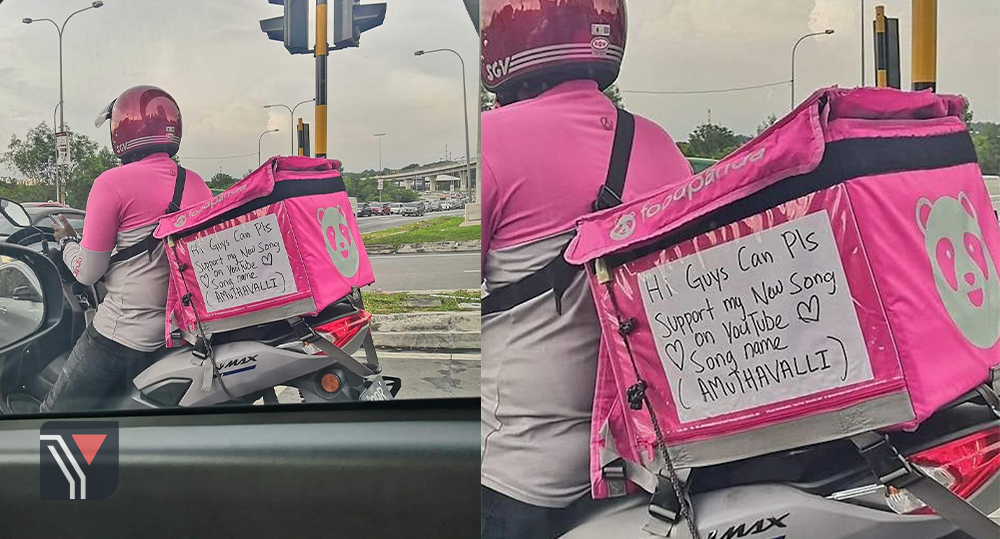 SGV
foodpanda
Hi Guys Can Pls
Support my New Song
♡ on YouTube
♡ Song name
(AMUTHAVALLI)
MAX
SGV
foodpanda
Hi Guys Can Pls
Support my New Song
♡ on YouTube ♡
Song name
(AMUTHAVALLI)
MAX